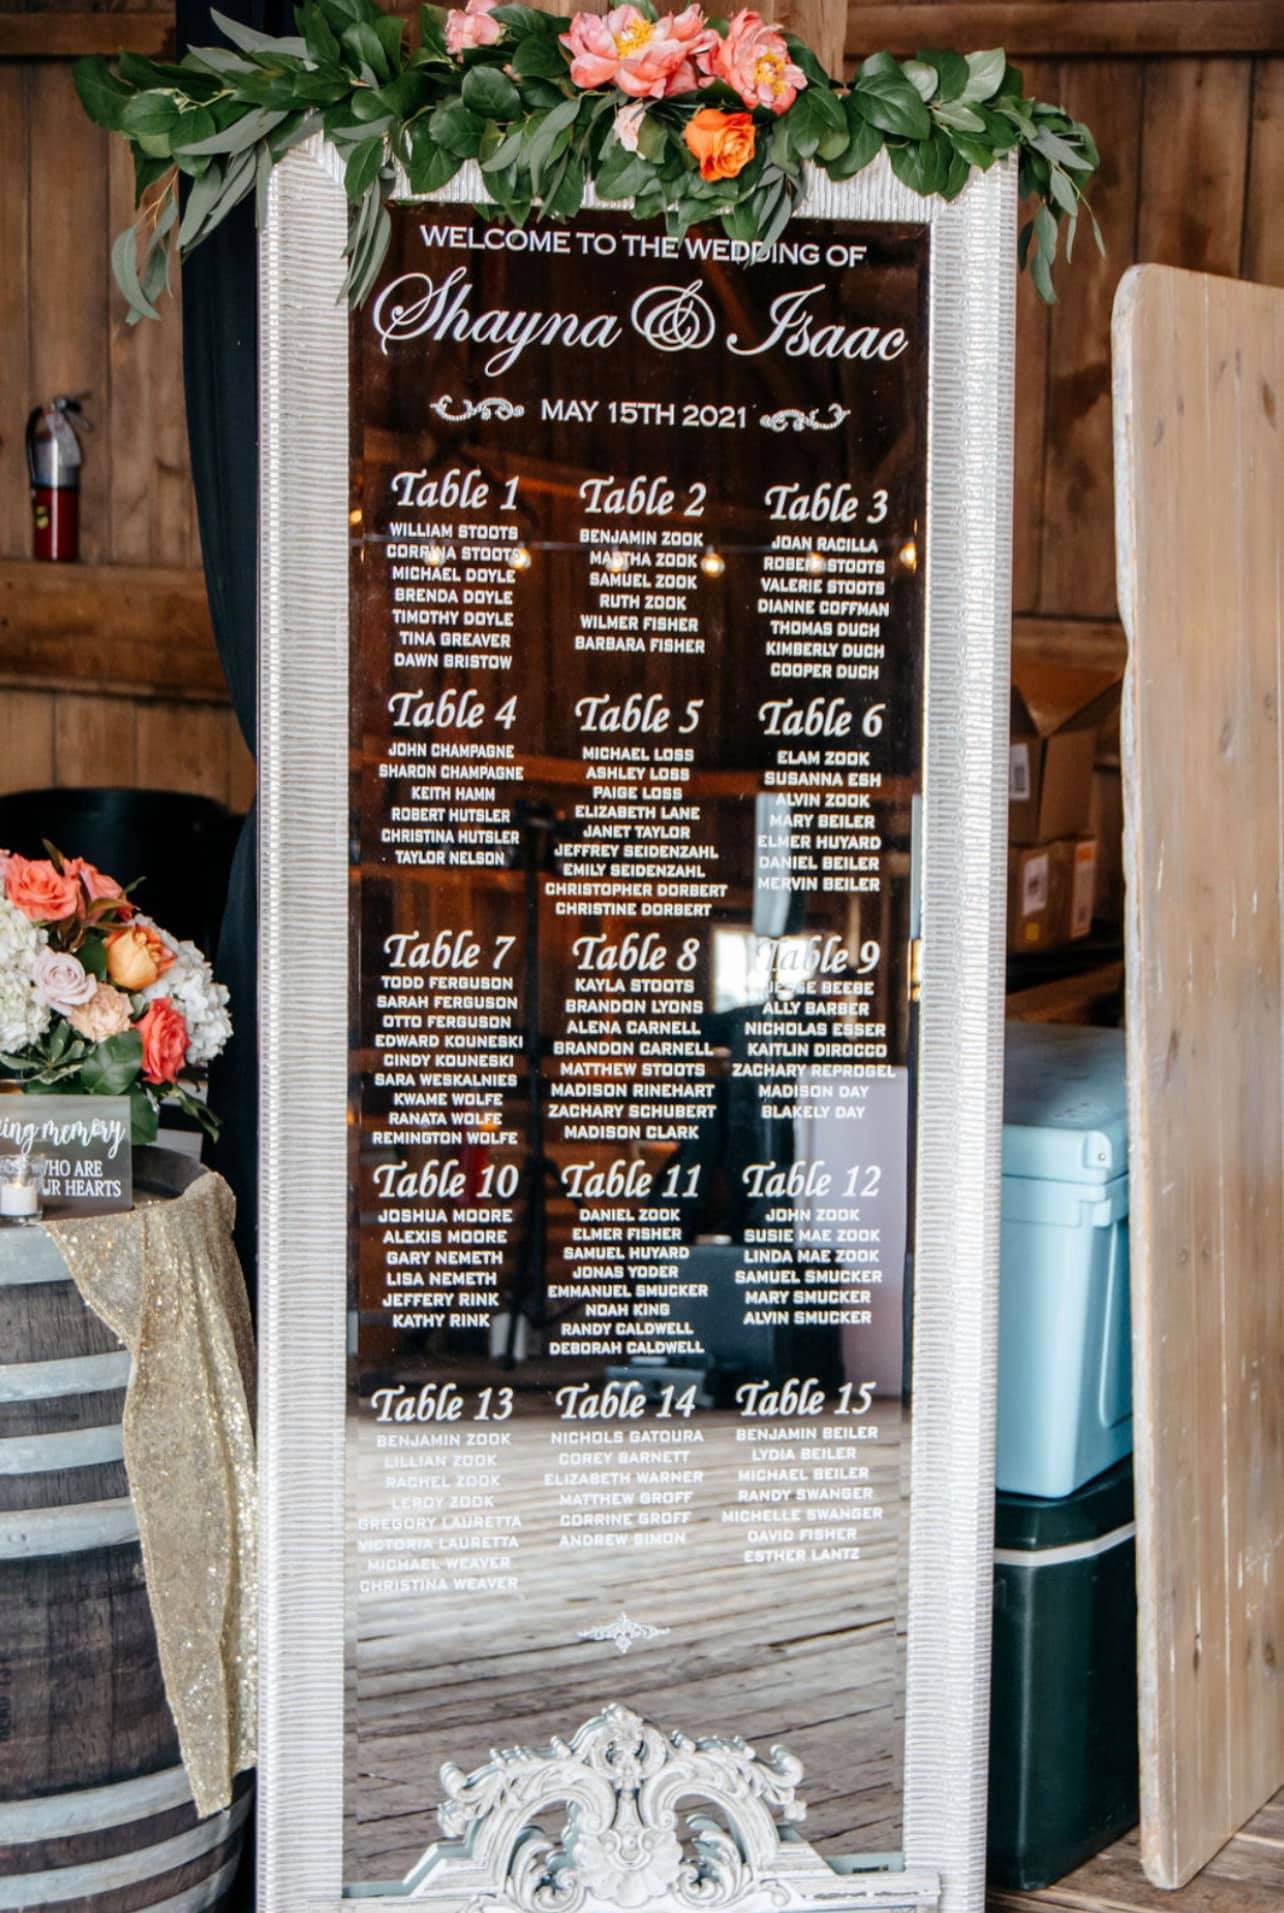 WELCOME TO THE WEDDING OF
Shayna & Isaac
MAY 15TH 2021
Table 1
WILLIAM STOOTS
CORRINA STOOTS
MICHAEL DOYLE
BRENDA DOYLE
TIMOTHY DOYLE
TINA GREAVER
DAWN BRISTOW
Table 2
BENJAMIN ZOOK
MARTHA ZOOK
SAMUEL ZOOK
RUTH ZOOK
WILMER FISHER
BARBARA FISHER
Table 3
JOAN RACILLA
ROBERT STOOTS
VALERIE STOOTS
DIANNE COFFMAN
THOMAS DUCH
KIMBERLY DUCH
COOPER DUCH
Table 4
JOHN CHAMPAGNE
SHARON CHAMPAGNE
KEITH HAMM
ROBERT HUTSLER
CHRISTINA HUTSLER
TAYLOR NELSON
Table 5
MICHAEL LOSS
ASHLEY LOSS
PAIGE LOSS
ELIZABETH LANE
JANET TAYLOR
JEFFREY SEIDENZAHL
EMILY SEIDENZAHL
CHRISTOPHER DORBERT
CHRISTINE DORBERT
Table 6
ELAM ZOOK
SUSANNA ESH
ALVIN ZOOK
MARY BEILER
ELMER HUYARD
DANIEL BEILER
MERVIN BEILER
Table 7
TODD FERGUSON
SARAH FERGUSON
OTTO FERGUSON
EDWARD KOUNESKI
CINDY KOUNESKI
SARA WESKALNIES
KWAME WOLFE
RANATA WOLFE
REMINGTON WOLFE
Table 8
KAYLA STOOTS
BRANDON LYONS
ALENA CARNELL
BRANDON CARNELL
MATTHEW STOOTS
MADISON RINEHART
ZACHARY SCHUBERT
MADISON CLARK
Table 9
JESSE BEEBE
ALLY BARBER
NICHOLAS ESSER
KAITLIN DIROCCO
ZACHARY REPROGEL
MADISON DAY
BLAKELY DAY
Table 10
JOSHUA MOORE
ALEXIS MOORE
GARY NEMETH
LISA NEMETH
JEFFERY RINK
KATHY RINK
Table 11
DANIEL ZOOK
ELMER FISHER
SAMUEL HUYARD
JONAS YODER
EMMANUEL SMUCKER
NOAH KING
RANDY CALDWELL
DEBORAH CALDWELL
Table 12
JOHN ZOOK
SUSIE MAE ZOOK
LINDA MAE ZOOK
SAMUEL SMUCKER
MARY SMUCKER
ALVIN SMUCKER
Table 13
BENJAMIN ZOOK
LILLIAN ZOOK
RACHEL ZOOK
LEROY ZOOK
GREGORY LAURETTA
VICTORIA LAURETTA
MICHAEL WEAVER
CHRISTINA WEAVER
Table 14
NICHOLS GATOURA
COREY BARNETT
ELIZABETH WARNER
MATTHEW GROFF
CORRINE GROFF
ANDREW SIMON
Table 15
BENJAMIN BEILER
LYDIA BEILER
MICHAEL BEILER
RANDY SWANGER
MICHELLE SWANGER
DAVID FISHER
ESTHER LANTZ
memory
WHO ARE
HEARTS